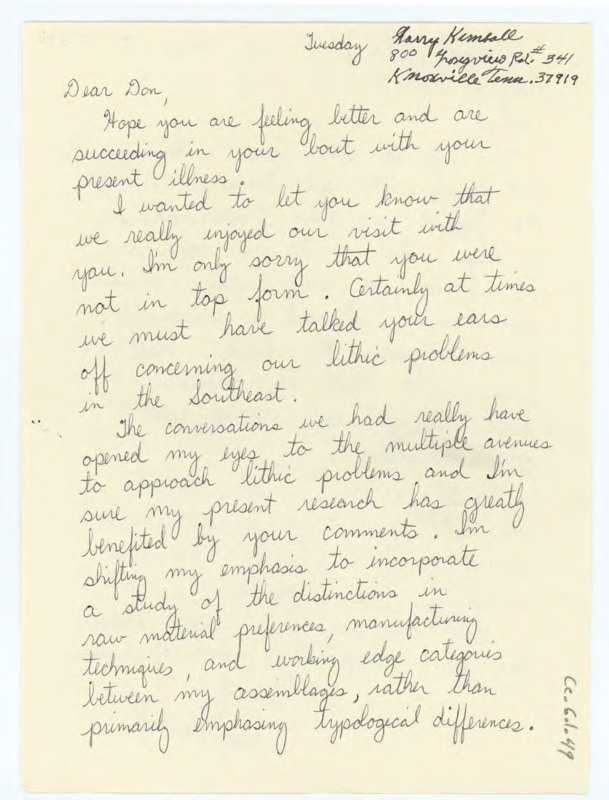 Tuesday
Larry Kimball
800 Longview Rd. # 341
Knoxville Tenn. 37919
Dear Don,
Hope you are feeling better and are
succeeding in your bout with your
present illness.
I wanted to let you know that
we really enjoyed our visit with
you. I'm only sorry that you were
not in top form. Certainly at times
we must have talked your ears
off concerning our lithic problems
in the Southeast.
The conversations we had really have
opened my eyes to the multiple avenues
to approach lithic problems and I'm
sure my present research has greatly
benefited by your comments. I'm
shifting my emphasis to incorporate
a study of the distinctions in
raw material preferences, manufacturing
techniques, and working edge categories
between my assemblages, rather than
primarily emphasing typological differences.
Cc.6.1.49